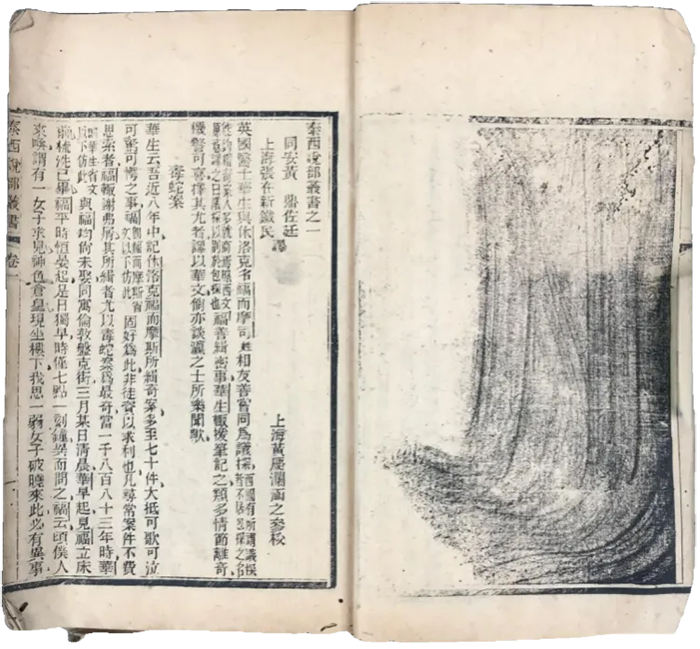 泰西說部叢書之一
同安黃 鼎佐廷
上海張在新鐵民 譯 上海黃慶瀾涵之參校
英國醫士華生與休洛克名福而摩司姓相友善嘗同為議探西國有所謂議探
福善緝密事華生輒後筆記之類多情節離奇
機警可喜擇其尤者譯以華文倘亦談議之士所樂聞歟
毒蛇案
華生云吾近八年中記休洛克福而摩斯所緝奇案多至七十件大抵可歌可泣
可驚可愕之事福即福而摩斯省文以下仿此固好為此非徒資以求利也凡尋常案件不費
思索者福輒謝弗屑其所緝者尤以毒蛇案爲最奇當一千八百八十三年時華
即華生省文以下仿此與福均尚未娶同寓倫敦盤克街三月某日清晨華早起見福立床
前梳洗已畢福平時恒晏起是日獨早時僅七點一刻鐘異而問之福云頃僕人
來喚謂有一女子求見神色倉皇現坐樓下我思一弱女子破曉來此必有異事
泰西說部叢書 卷一